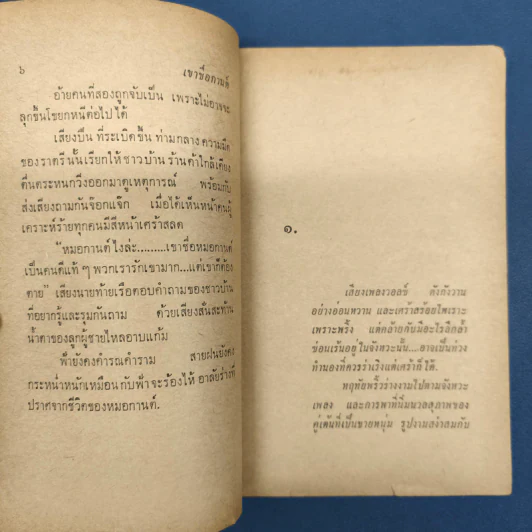 ๖
เขาชื่อกานต์
อ้ายคนที่สองถูกจับเป็น เพราะไม่อาจจะ
ลุกขึ้นโขยกหนีต่อไปได้
เสียงปืน ที่ระเบิดขึ้น ท่ามกลางความมืด
ของราตรีนั้นเรียกให้ชาวบ้าน ร้านค้าใกล้เคียง
ตื่นตระหนกวิ่งออกมาดูเหตุการณ์ พร้อมกับ
ส่งเสียงถามกันจ๊อกแจ๊ก เมื่อได้เห็นหน้าคนผู้
เคราะห์ร้ายทุกคนมีสีหน้าเศร้าสลด
"หมอกานต์ไงล่ะ.........เขาชื่อหมอกานต์
เป็นคนดีแท้ ๆ พวกเรารักเขามาก...แต่เขาก็ต้อง
ตาย" เสียงนายท้ายเรือตอบคำถามของชาวบ้าน
ที่อยากรู้และรุมกันถาม ด้วยเสียงสั่นสะท้าน
น้ำตาของลูกผู้ชายไหลอาบแก้ม
ฟ้ายังคงคำรณคำราม สายฝนยังคง
กระหน่ำหนักเหมือนกับฟ้าจะร้องไห้ อาลัยร่างที่
ปราศจากชีวิตของหมอกานต์.
๑.
เสียงเพลงวอลซ์ ดังกังวาน
อย่างอ่อนหวาน และเศร้าสร้อยไพเราะ
เพราะพริ้ง แต่คล้ายกับมีอะไรลึกล้ำ
ซ่อนเร้นอยู่ในจังหวะนั้น...อาจเป็นห้วง
ทำนองที่ควรร่าเริงแต่เศร้าก็ได้.
หฤทัยพริ้วร่างงามไปตามจังหวะ
เพลง และการพาที่นิ่มนวลสุภาพของ
คู่เต้นที่เป็นชายหนุ่ม รูปงามสง่าสมกับ